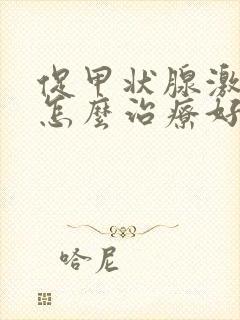 促甲状腺激
怎麼治療好
哈尼